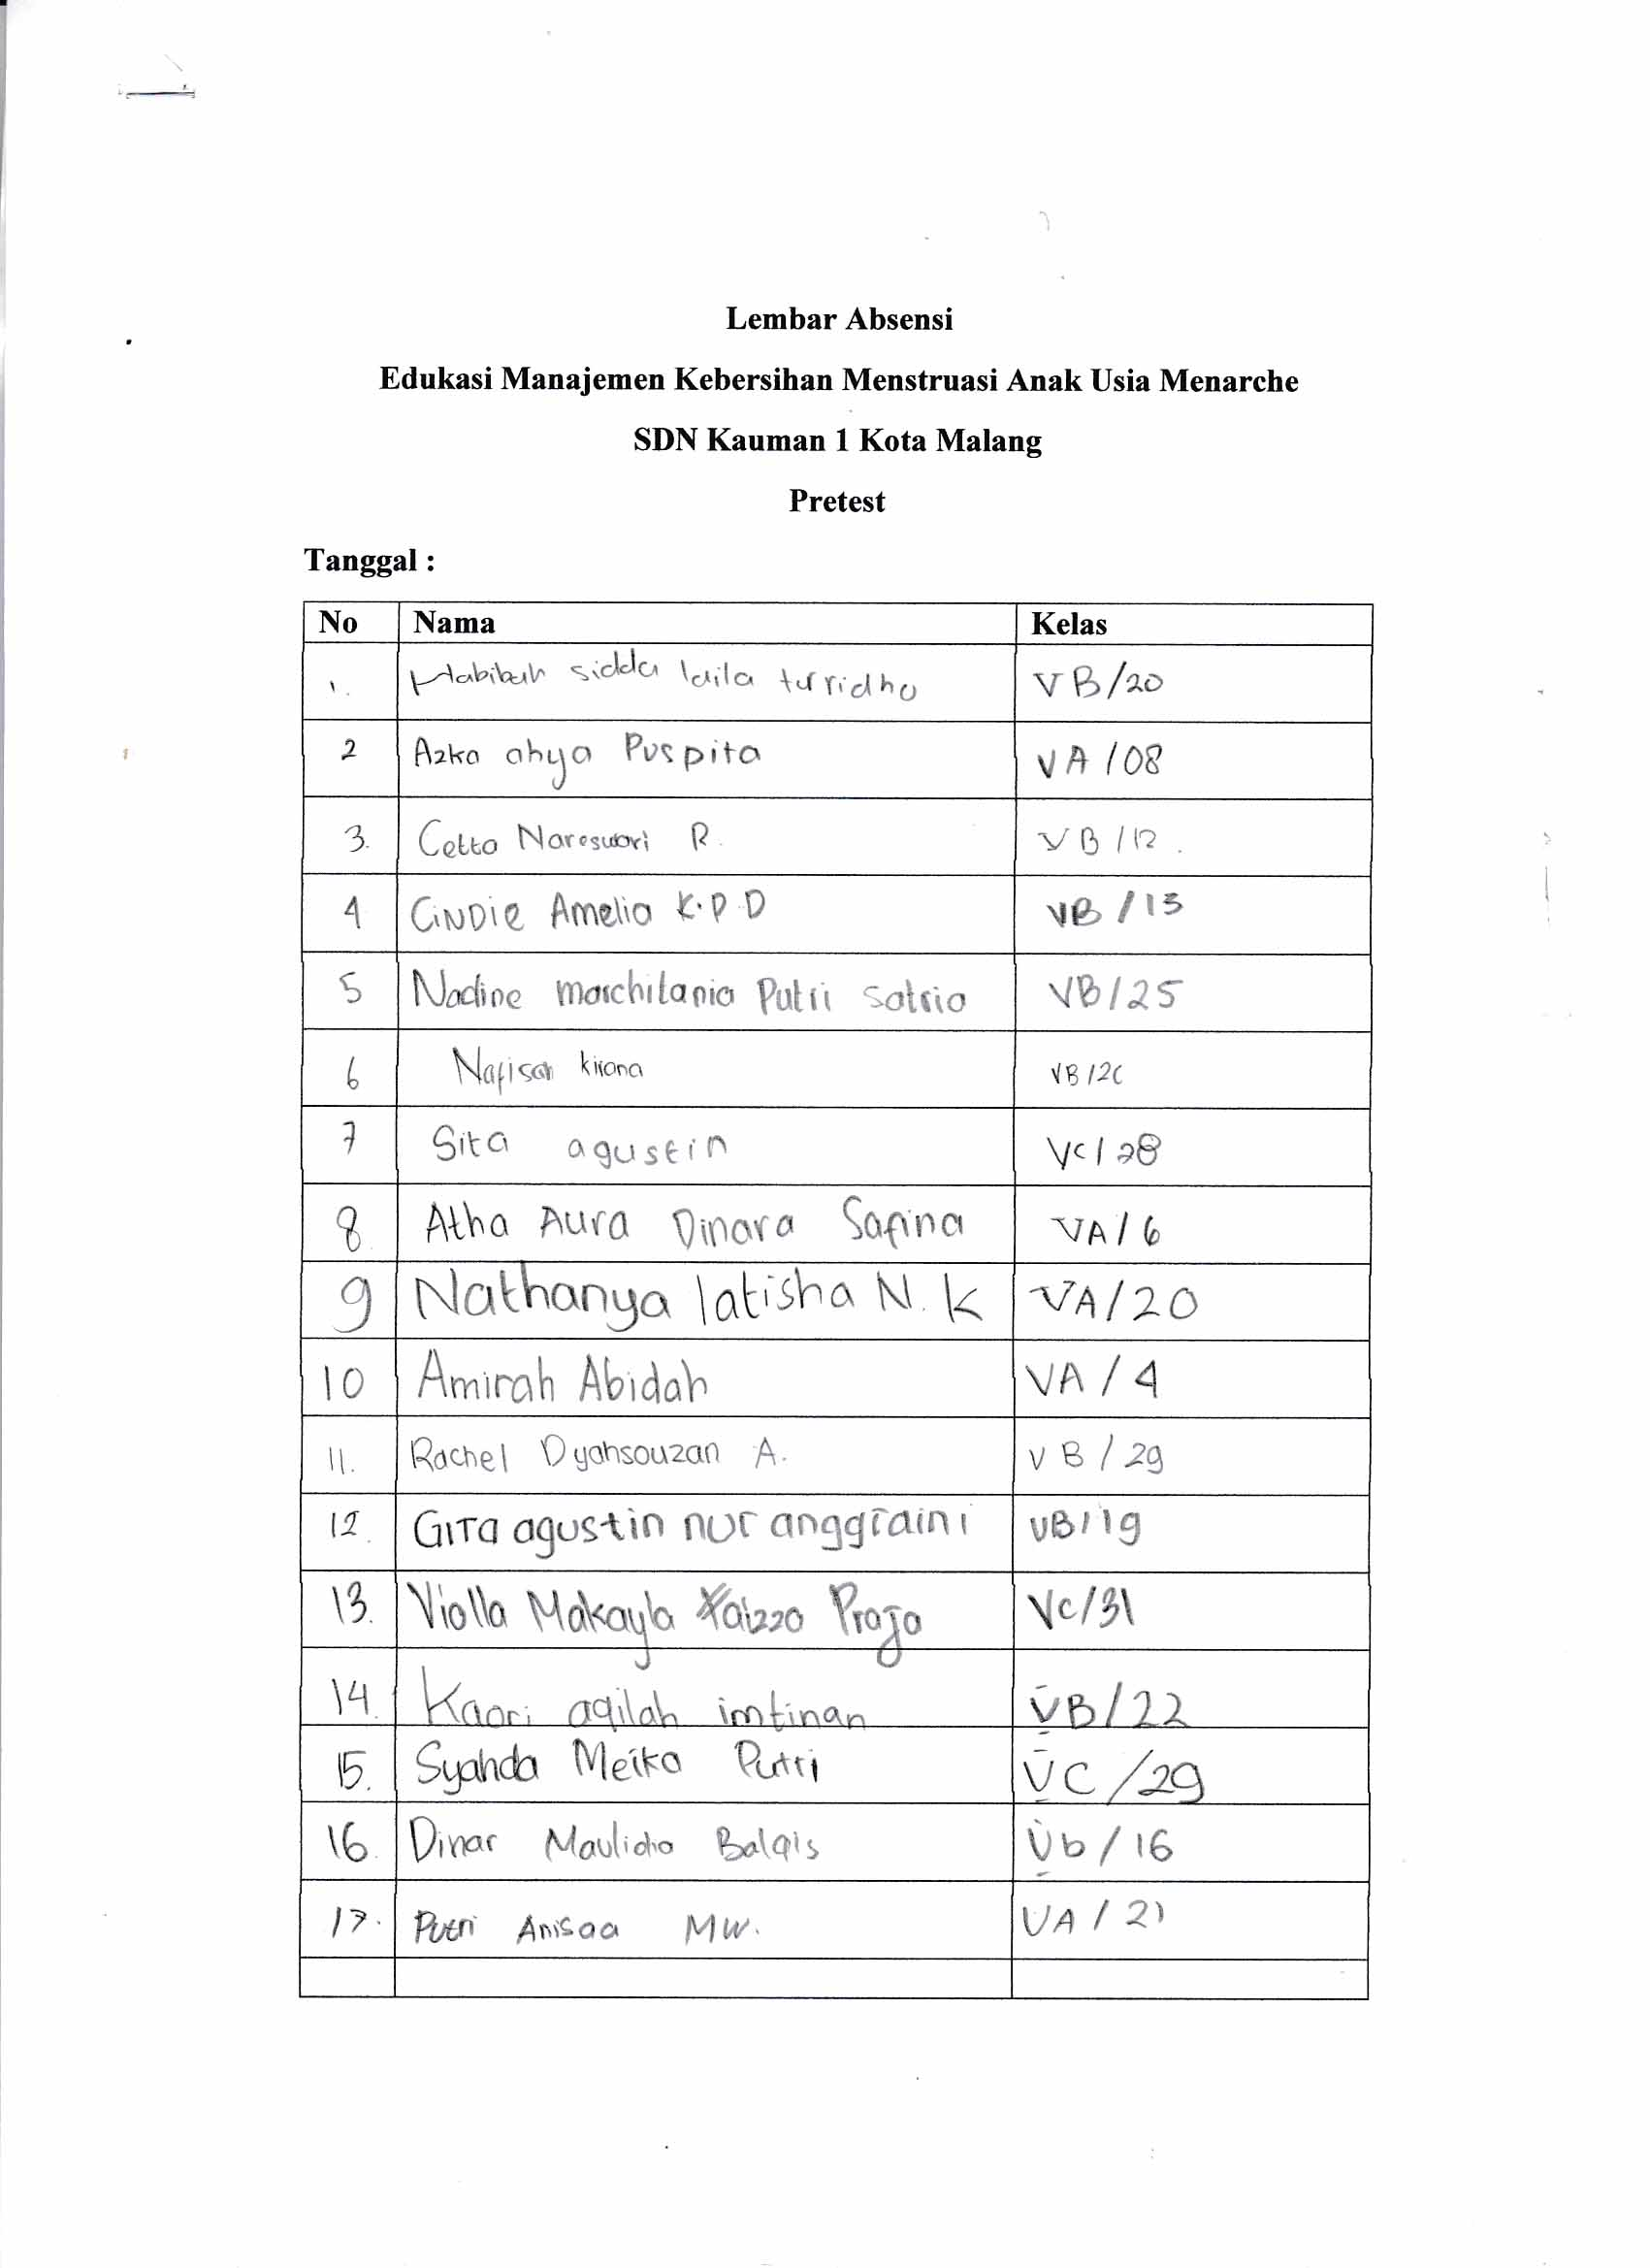 Lembar Absensi
Edukasi Manajemen Kebersihan Menstruasi Anak Usia Menarche
SDN Kauman 1 Kota Malang
Pretest
Tanggal :
No Nama Kelas
1. Habibah sidda laila turridho VB/20
2 Azka ahya Puspita VA/08
3. Cetta Nareswari R. VB/12.
4 CiNDie Amelia K.P.D VB/13
5 Nadine maschitania Putri satrio VB/25
6 Nafisah kirana VB/26
7 Sita agustin VC/28
8 Atha Aura Dinara Safina VA/6
9 Nathanya latisha N. K VA/20
10 Amirah Abidah VA/4
11. Rachel Dyahsouzan A. VB/29
12. Gita agustin nur anggraini VB/19
13. Violla Makayla Praja VC/31
14. Kaori aqilah imtinan VB/22
15. Syahda Meika Putri VC/29
16. Dinar Maulidia Balqis Vb/16
17. Putri Anisaa MW. VA/21